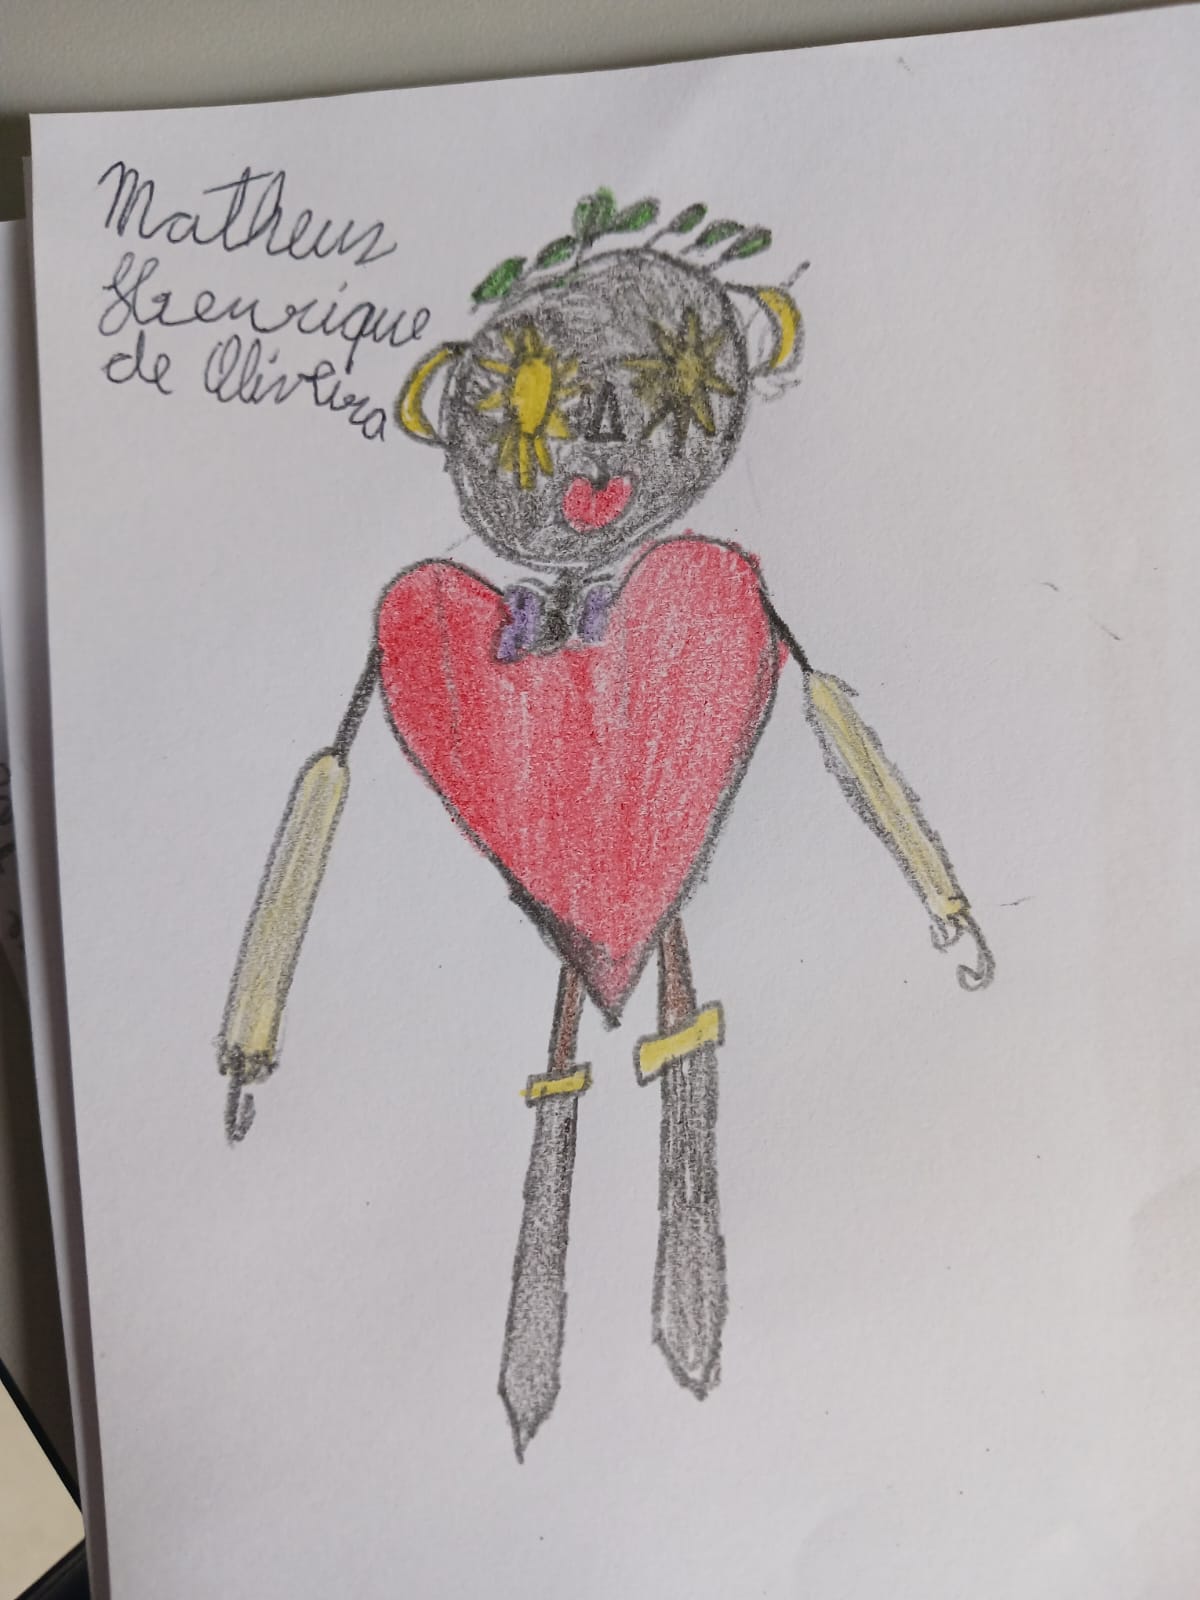 Matheus
Henrique
de Oliveira